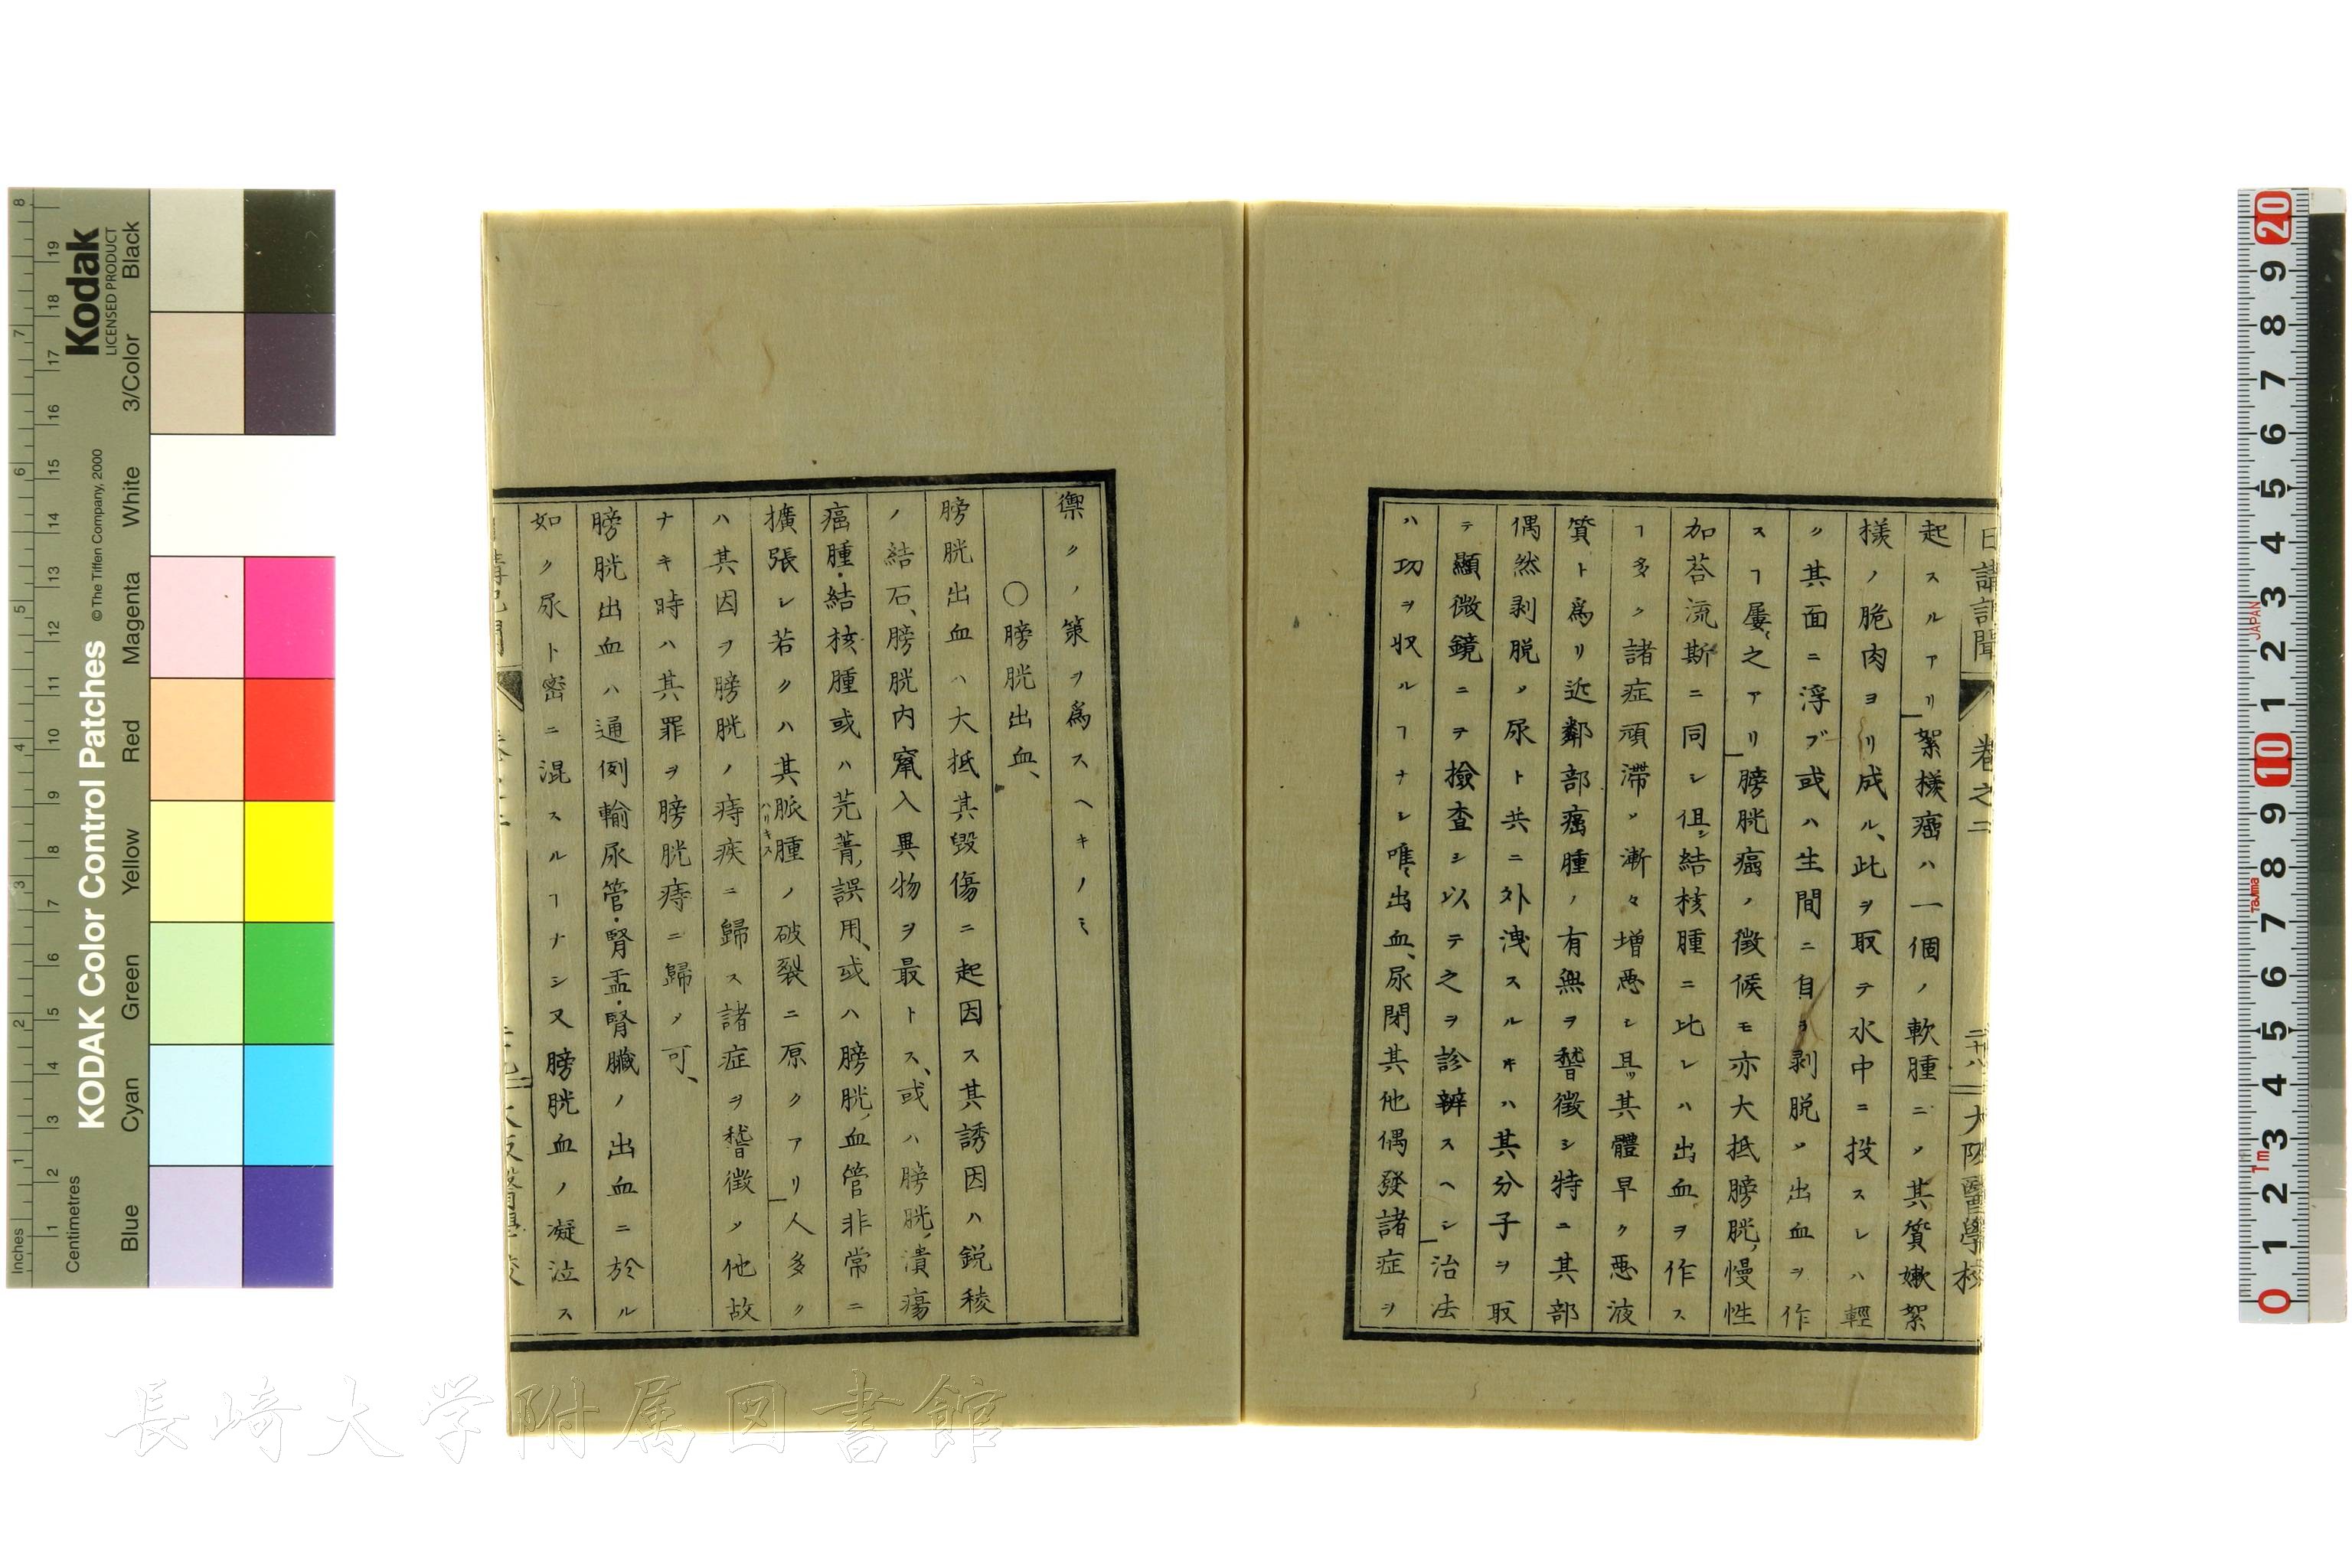 日講記聞 卷之二 二十八 大阪醫學校
起スルアリ絮樣癌ハ一個ノ軟腫ニ〆其質嫩絮
樣ノ脆肉ヨリ成ル、此ヲ取テ水中ニ投スレハ輕
ク其面ニ浮ブ或ハ生間ニ自ラ剥脱〆出血ヲ作
スヿ屢〻之アリ膀胱癌ノ徴候モ亦大抵膀胱慢性
加荅流斯ニ同シ但シ結核腫ニ比レハ出血ヲ作ス
ヿ多ク諸症頑滯〆漸々增惡シ且ツ其體早ク惡液
質ト爲リ近鄰部癌腫ノ有無ヲ稽徵シ特ニ其部
偶然剥脱〆尿ト共ニ外洩スルキハ其分子ヲ取
テ顯微鏡ニテ撿查シ以テ之ヲ診辨スヘシ治法
ハ功ヲ收ルヿナシ唯〻出血、尿閉其他偶發諸症ヲ
禦クノ策ヲ爲スヘキノミ
〇膀胱出血、
膀胱出血ハ大抵其毀傷ニ起因ス其誘因ハ鋭稜
ノ結石、膀胱内竄入異物ヲ最トス、或ハ膀胱潰瘍
癌腫・結核腫或ハ芫菁誤用、或ハ膀胱血管非常ニ
擴張シ若クハ其脈腫ノ破裂ニ原クアリ人多ク
ハリキス
ハ其因ヲ膀胱ノ痔疾ニ歸ス諸症ヲ稽徵〆他故
ナキ時ハ其罪ヲ膀胱痔ニ歸〆可、
膀胱出血ハ通例輸尿管・腎盂・腎臓ノ出血ニ於ル
如ク尿ト密ニ混スルヿナシ又膀胱血ノ凝泣ス
Kodak
LICENSED PRODUCT
KODAK Color Control Patches
©The Tiffen Company, 2000
Blue Cyan Green Yellow Red Magenta White 3/Color Black
Inches 1 2 3 4 5 6 7 8
Centimetres 1 2 3 4 5 6 7 8 9 10 11 12 13 14 15 16 17 18 19
0 1 2 3 4 5 6 7 8 9 10 1 2 3 4 5 6 7 8 9 20
1m Tajima JAPAN
長崎大学附属図書館